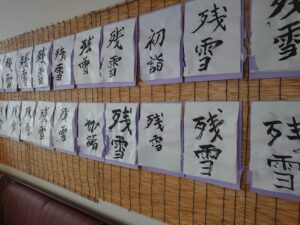 残雪
残雪
残雪
残雪
残雪
初詣
残雪
残雪
残雪
残雪
残雪
初詣
残雪
残雪
残雪
残雪